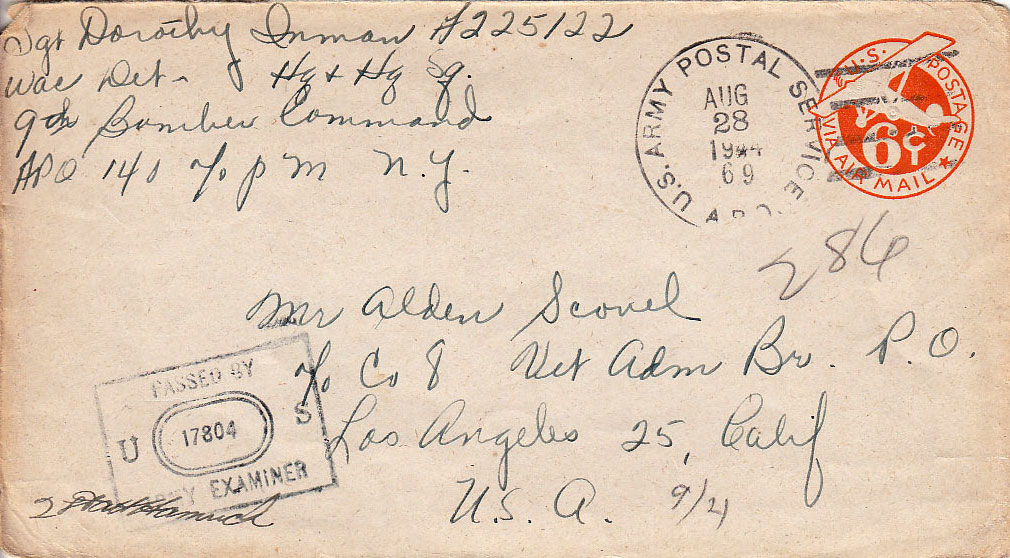 Sgt Dorothy Inman A225122
Wac Det - Hq & Hq Sq.
9th Bomber Command
APO 140 c/o P M N.Y.
U.S. ARMY POSTAL SERVICE
A.P.O.
AUG
28
1944
69
U.S. POSTAGE
VIA AIR MAIL
6¢
286
Mr Alden Scovel
c/o Co 8 Vet Adm Br. P.O.
Los Angeles 25, Calif
U.S.A.
9/4
PASSED BY
U 17804 S
ARMY EXAMINER